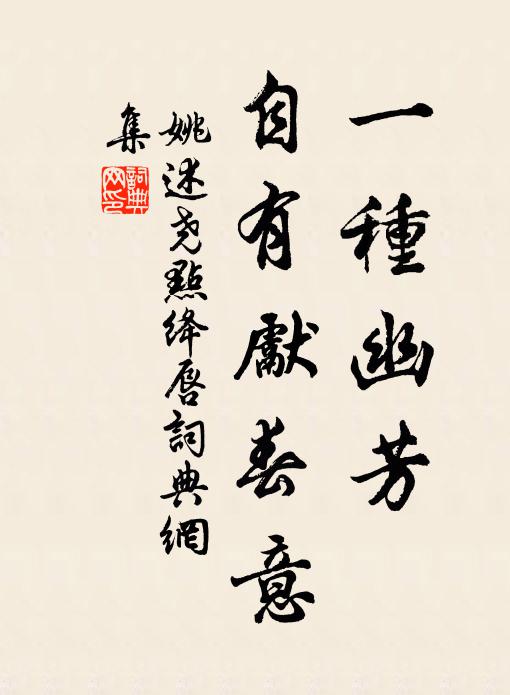 一種幽芳
自有獻春意
姚述堯點絳唇詞典網
集
詞典
网印